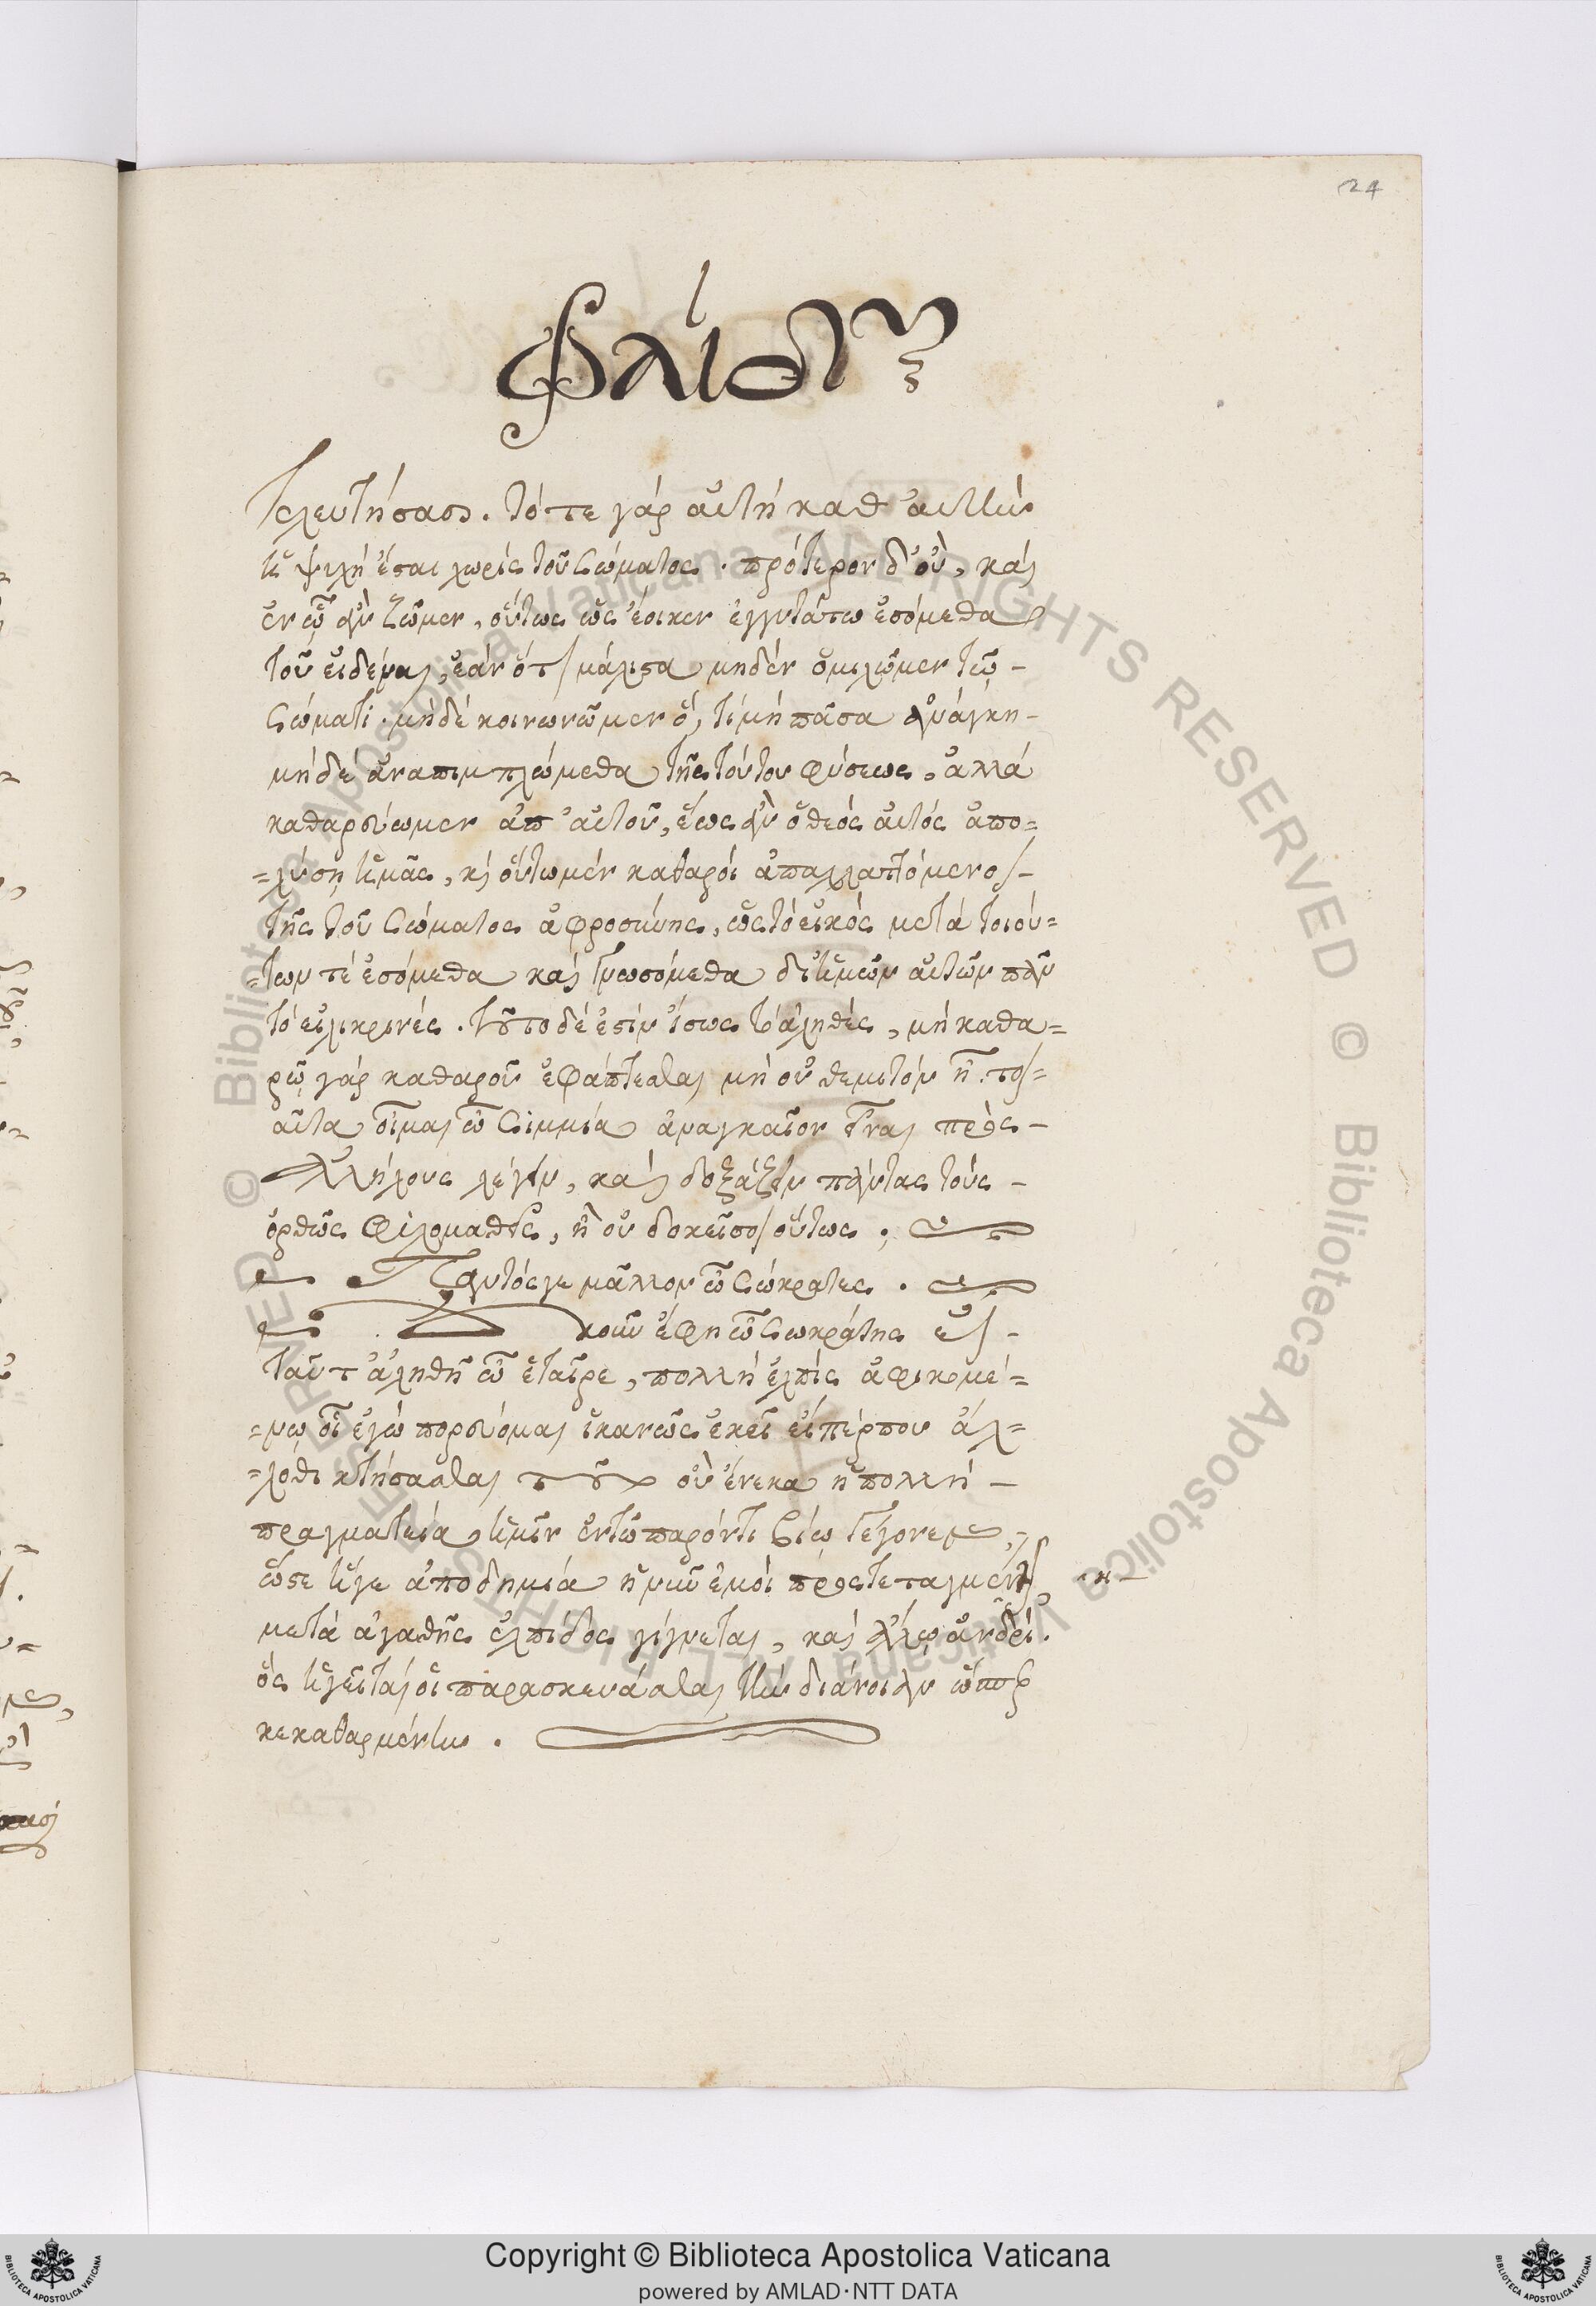 24
Φαίδων
Τελευτήσασι. τότε γάρ αὐτή καθ' αὑτήν
ἡ ψυχή ἔσται χωρίς τοῦ σώματος. πρότερον δ' οὔ, καί
ἐν ᾧ ἄν ζῶμεν, οὕτως ὡς ἔοικεν ἐγγυτάτω ἐσόμεθα
τοῦ εἰδέναι, ἐάν ὅτι μάλιστα μηδέν ὁμιλῶμεν τῷ -
σώματι. μηδέ κοινωνῶμεν ὅ, τι μή πᾶσα ἀνάγκη -
μηδέ ἀναπιμπλώμεθα τῆς τούτου φύσεως, ἀλλά
καθαρεύωμεν ἀπ' αὐτοῦ, ἕως ἄν ὁ θεός αὐτός ἀπο=
=λύσῃ ἡμᾶς, καί οὕτω μέν καθαροί ἀπαλλαττόμενοι -
τῆς τοῦ σώματος ἀφροσύνης, ὡς τό εἰκός μετά τοιού=
=των τέ ἐσόμεθα καί γνωσόμεθα δι' ἡμῶν αὐτῶν πᾶν
τό εἰλικρινές. τοῦτο δέ ἐστίν ἴσως τό ἀληθές, μή καθα=
ρῷ γάρ καθαροῦ ἐφάπτεσθαι μή οὐ θεμιτόν ᾖ. τοι=
αῦτα οἶμαι ὦ Σιμμία ἀναγκαῖον εἶναι πρός -
ἀλλήλους λέγειν, καί δοξάζειν πάντας τούς -
ὀρθῶς φιλομαθεῖς, ἤ οὐ δοκεῖ σοι οὕτως;
Παντός γε μᾶλλον ὦ Σώκρατες.
Οὐκοῦν ἔφη ὦ Σωκράτης εἰ -
ταῦτ' ἀληθῆ ὦ ἑταῖρε, πολλή ἐλπίς ἀφικομέ=
=νῳ οἷ ἐγώ πορεύομαι ἱκανῶς ἐκεῖ εἴπερ που ἄλ=
=λοθι κτήσασθαι τοῦτο οὗ ἕνεκα ἡ πολλή -
πραγματεία ἡμῖν ἐν τῷ παρόντι βίῳ γέγονεν,
ὥστε ἥγε ἀποδημία ἡ νῦν ἐμοί προστεταγμένη -η-
μετά ἀγαθῆς ἐλπίδος γίγνεται, καί ἄλλῳ ἀνδρί.
ὅς ἡγεῖται οἱ παρασκευάσθαι τήν διάνοιαν ὥσπερ
κεκαθαρμένην.
© Biblioteca Apostolica Vaticana ALL RIGHTS RESERVED © Biblioteca Apostolica Vaticana ALL RIGHTS RESERVED
Copyright © Biblioteca Apostolica Vaticana
powered by AMLAD·NTT DATA
BIBLIOTECA APOSTOLICA VATICANA
BIBLIOTECA APOSTOLICA VATICANA